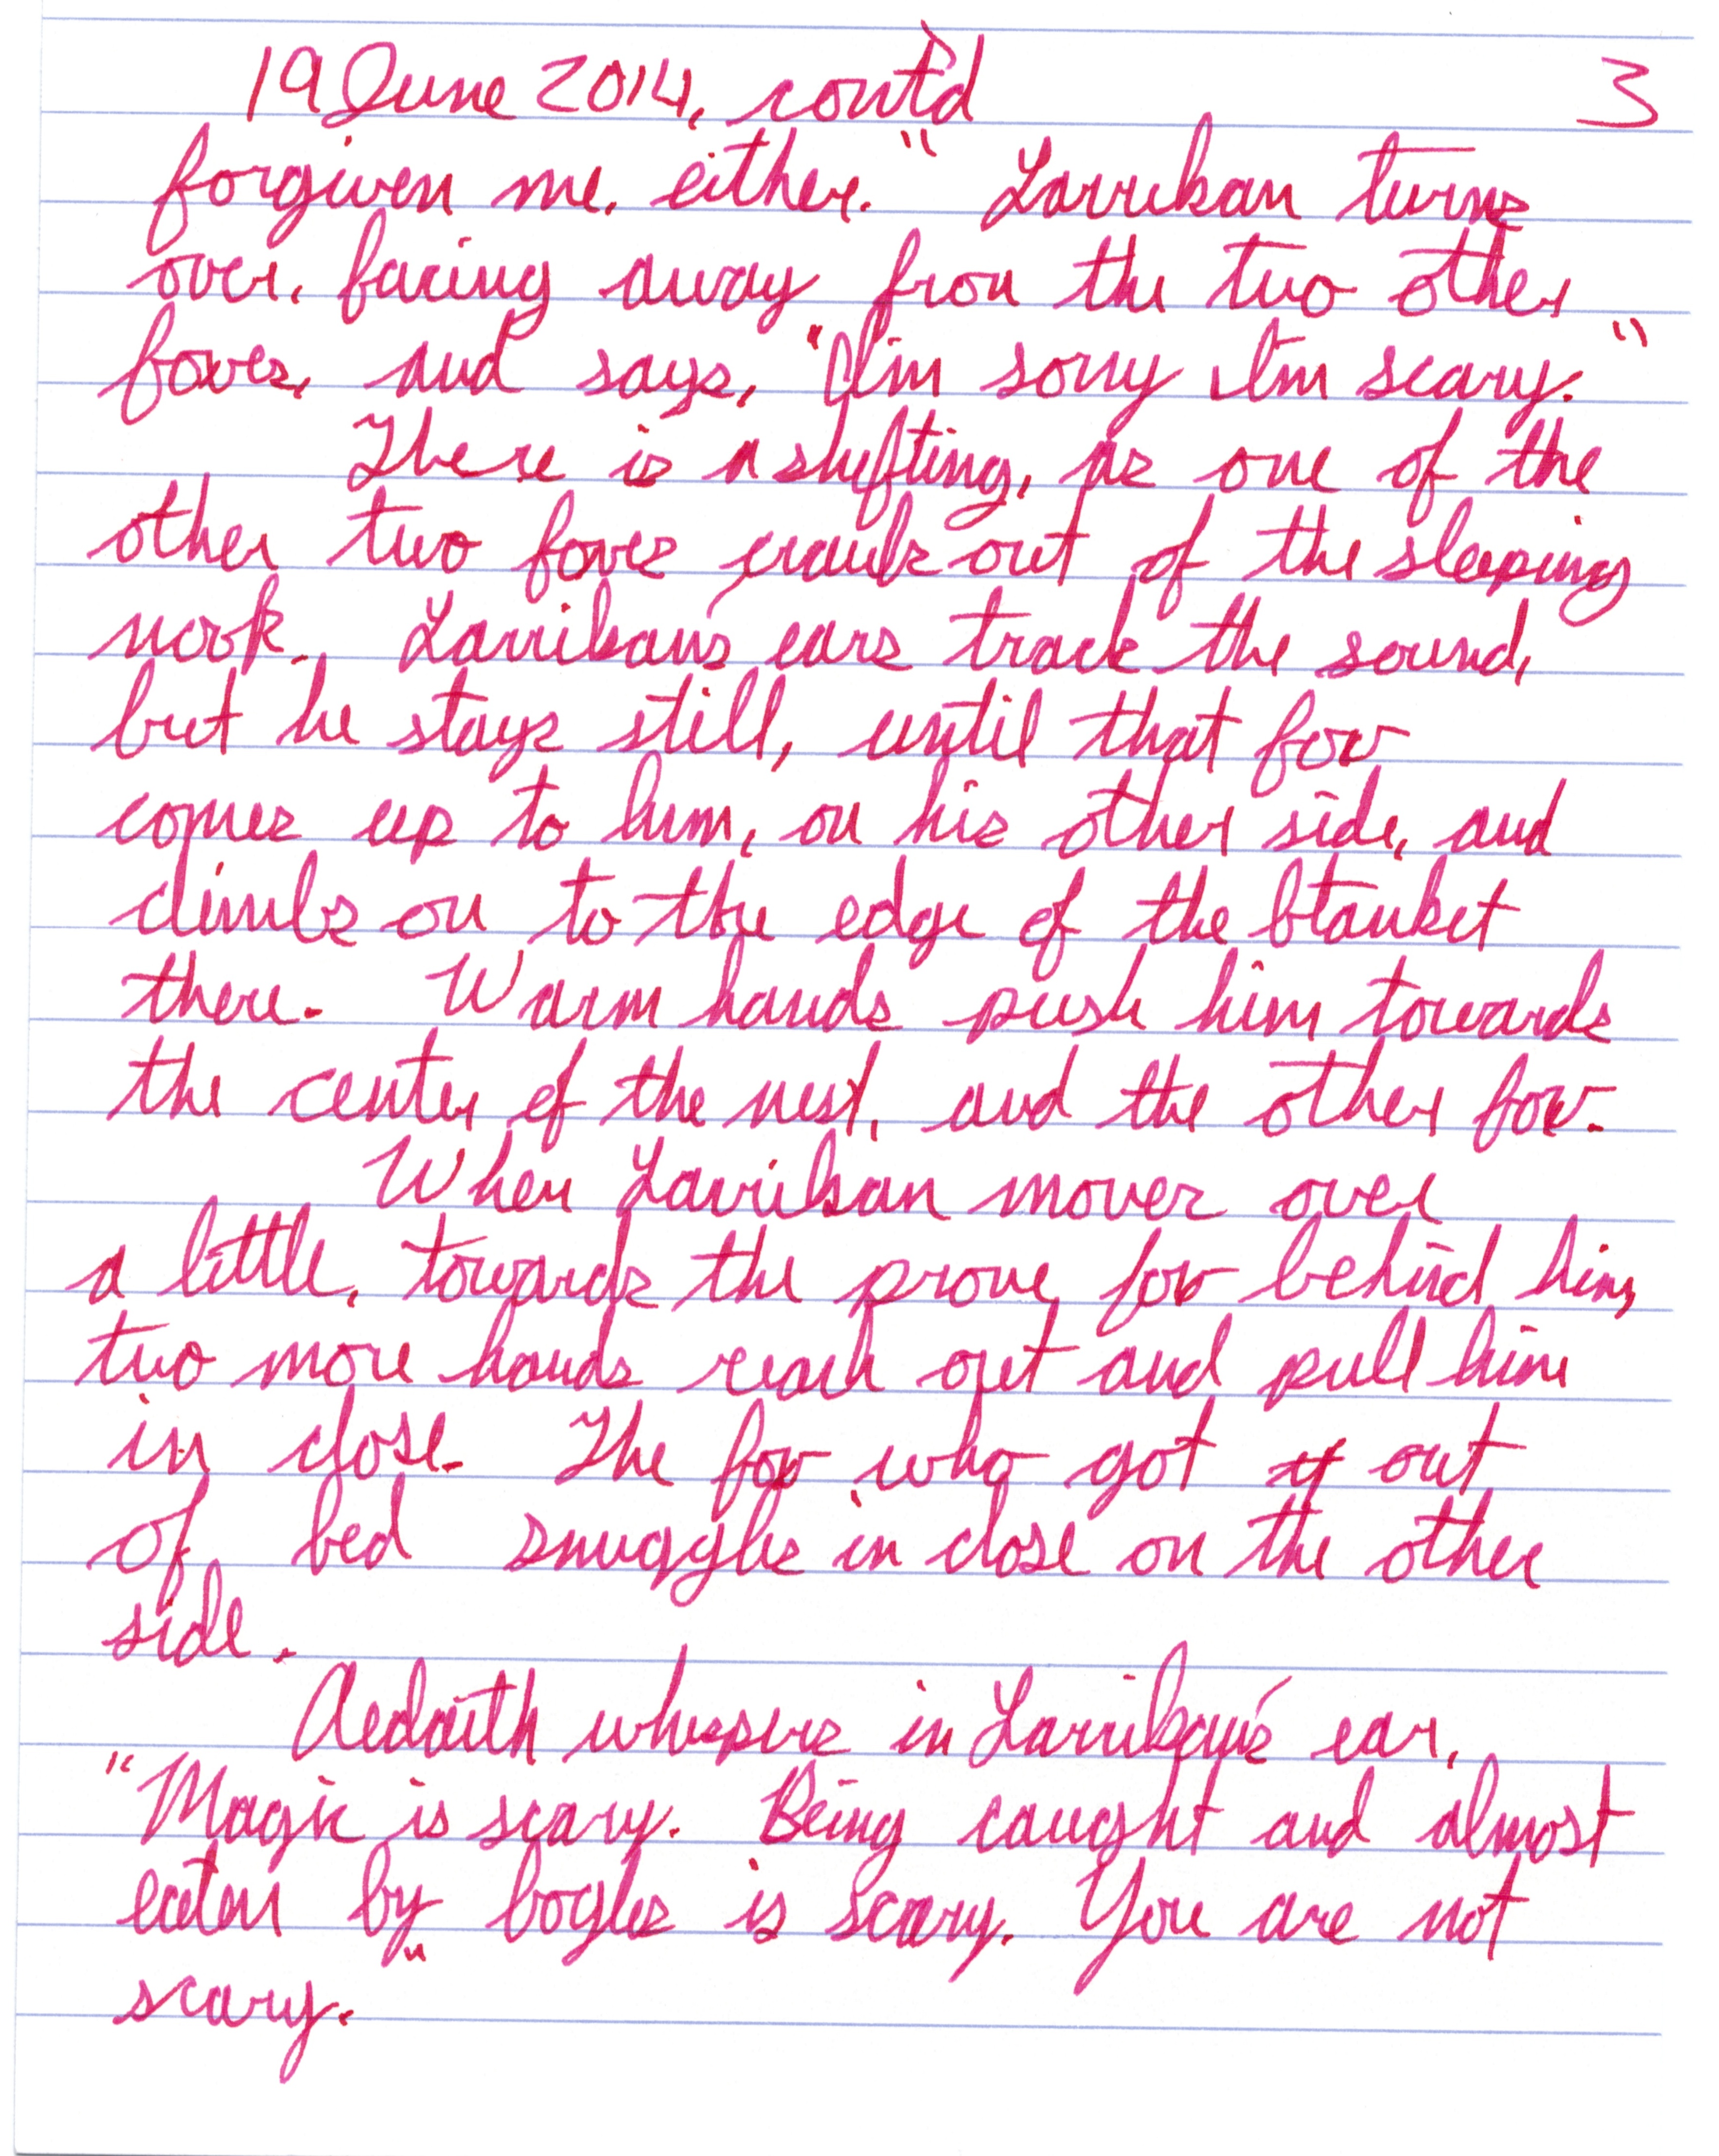 19 June 2014, cont'd 3
forgiven me, either." Larrikan turns
over, facing away from the two other
foxes, and says, "I'm sorry I'm scary."
There is a shifting, as one of the
other two foxes crawls out of the sleeping
nook. Larrikan's ears track the sound,
but he stays still, until that fox
comes up to him, on his other side, and
climbs on to the edge of the blanket
there. Warm hands push him towards
the center of the nest, and the other fox.
When Larrikan moves over
a little, towards the prone fox behind him,
two more hands reach out and pull him
in close. The fox who got out
of bed snuggles in close on the other
side.
Aedaith whispers in Larrikan's ear,
"Magic is scary. Being caught and almost
eaten by bogles is scary. You are not
scary."